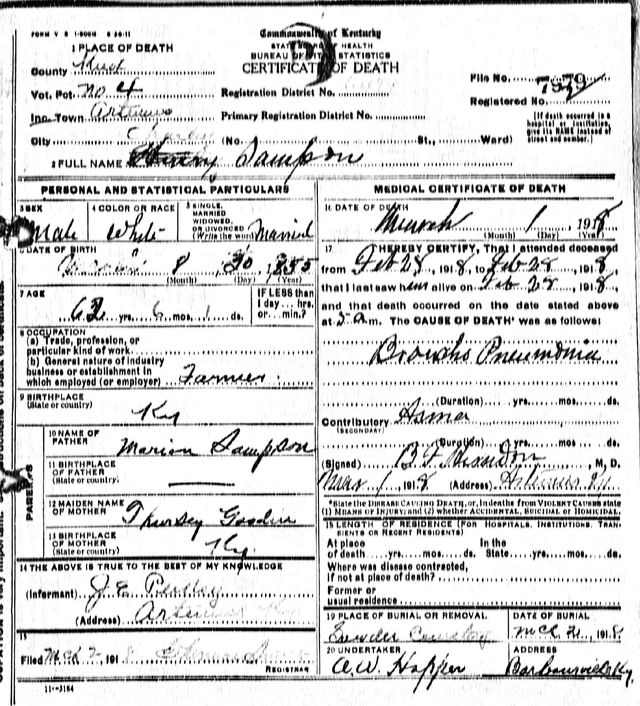 FORM V S 1-500M 6 30-11
1 PLACE OF DEATH
Commonwealth of Kentucky
STATE BOARD OF HEALTH
BUREAU OF VITAL STATISTICS
CERTIFICATE OF DEATH
County Knox
Vot. Pct. No 4
Inc. Town Artemus
City
Registration District No.
Primary Registration District No.
(No. St., Ward)
File No.
7979
Registered No.
[If death occurred in a hospital or institution, give its NAME instead of street and number.]
2 FULL NAME Sampson
PERSONAL AND STATISTICAL PARTICULARS
3 SEX Male
4 COLOR OR RACE White
5 SINGLE, MARRIED WIDOWED, OR DIVORCED (Write the word) Married
6 DATE OF BIRTH 8 30
(Month) (Day) (Year)
7 AGE
62 yrs. 6 mos. 1 ds.
IF LESS than 1 day... hrs. or... min.?
8 OCCUPATION
(a) Trade, profession, or particular kind of work
(b) General nature of industry business or establishment in which employed (or employer) Farmer
9 BIRTHPLACE
(State or country) Ky
PARENTS
10 NAME OF FATHER Marion Sampson
11 BIRTHPLACE OF FATHER
(State or country)
12 MAIDEN NAME OF MOTHER Thursey Goodin
13 BIRTHPLACE OF MOTHER
(State or country) Ky.
14 THE ABOVE IS TRUE TO THE BEST OF MY KNOWLEDGE
(Informant) J. E.
(Address) Artemus Ky
15
Filed Mch 2, 1918
REGISTRAR
11-3184
MEDICAL CERTIFICATE OF DEATH
16 DATE OF DEATH March 1, 1918
(Month) (Day) (Year)
17 I HEREBY CERTIFY, That I attended deceased
from Feb 28, 1918, to Feb 28, 1918,
that I last saw him alive on Feb 28, 1918,
and that death occurred on the date stated above
at 5 am. The CAUSE OF DEATH* was as follows:
Broncho Pneumonia
(Duration) yrs. mos. ds.
Contributory Asma
(SECONDARY)
(Duration) yrs. mos. ds.
(Signed) B. F. Herndon, M. D.
Mar 1, 1918 (Address) Artemus Ky.
*State the DISEASE CAUSING DEATH, or, in deaths from VIOLENT CAUSES state
(1) MEANS OF INJURY; and (2) whether ACCIDENTAL, SUICIDAL or HOMICIDAL
18 LENGTH OF RESIDENCE (FOR HOSPITALS, INSTITUTIONS, TRANSIENTS OR RECENT RESIDENTS)
At place of death yrs. mos. ds. In the State yrs. mos. ds.
Where was disease contracted,
If not at place of death?
Former or
usual residence
19 PLACE OF BURIAL OR REMOVAL
Cemetery
DATE OF BURIAL
Mch 2, 1918
20 UNDERTAKER
A. W. Hopper
ADDRESS
Barbourville Ky.